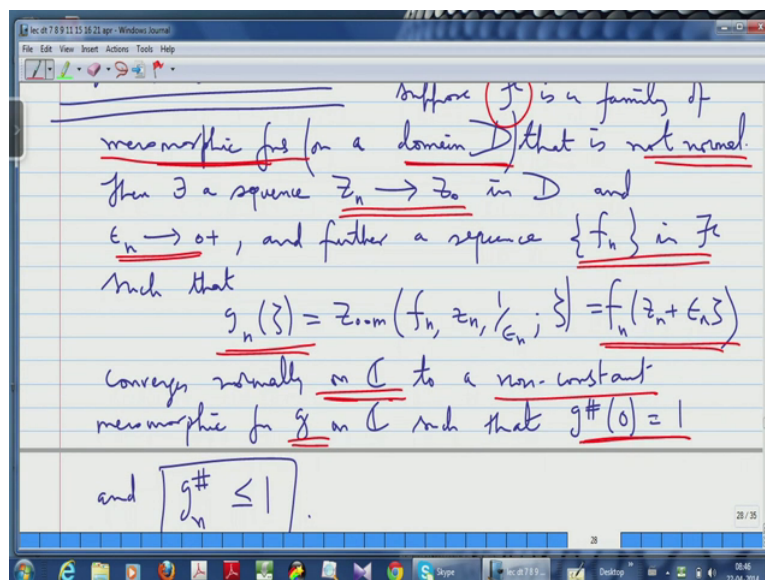 lec dt 7 8 9 11 15 16 21 apr - Windows Journal
File Edit View Insert Actions Tools Help
suppose ℱ is a family of
meromorphic fns (on a domain D) that is not normal.
Then ∃ a sequence z_n → z_0 in D and
ϵ_n → 0+, and further a sequence {f_n} in ℱ
such that
g_n(ζ) = Zoom(f_n, z_n, 1/ϵ_n; ζ) = f_n(z_n + ϵ_n ζ)
converges normally on ℂ to a non-constant
meromorphic fn g on ℂ such that g#(0) = 1
and g_n# ≤ 1.
28 / 35
28
Skype lec dt 7 8 9 ... Desktop » 08:46